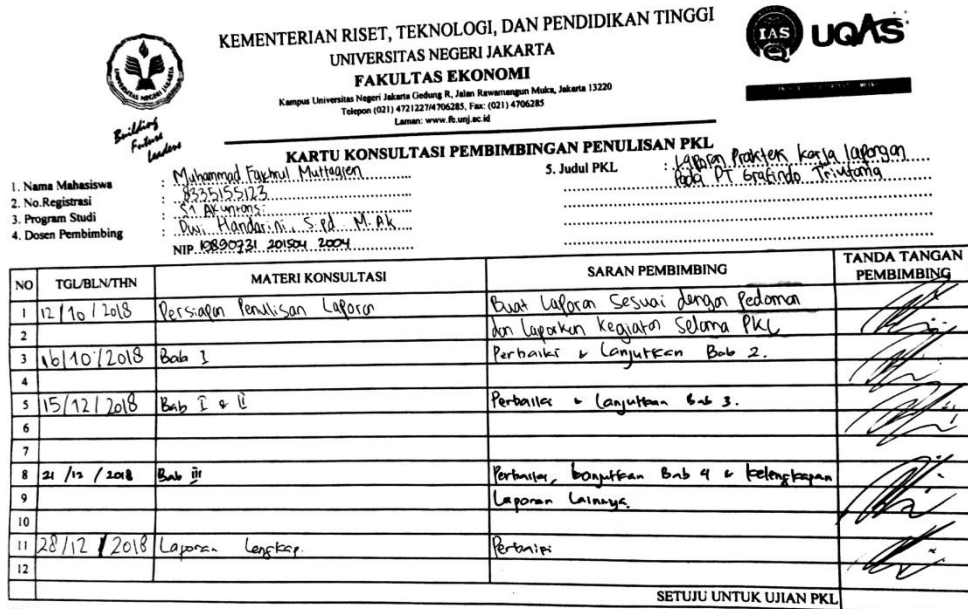 KEMENTERIAN RISET, TEKNOLOGI, DAN PENDIDIKAN TINGGI
UNIVERSITAS NEGERI JAKARTA
FAKULTAS EKONOMI
Kampus Universitas Negeri Jakarta Gedung R, Jalan Rawamangun Muka, Jakarta 13220
Telepon (021) 4721227/4706285, Fax: (021) 4706285
Laman: www.fe.unj.ac.id
UNIVERSITAS NEGERI JAKARTA
Building
Future
Leaders
IAS
UQAS
KARTU KONSULTASI PEMBIMBINGAN PENULISAN PKL
1. Nama Mahasiswa : Muhammad Fakhrul Muttaqien
2. No.Registrasi : 8335155123
3. Program Studi : S1 Akuntansi
4. Dosen Pembimbing : Dwi Handarini, S.Pd M.Ak
NIP. 19890731 201504 2004
5. Judul PKL : Laporan Praktek Kerja lapangan
Pada PT Grafindo Triutama
NO TGL/BLN/THN MATERI KONSULTASI SARAN PEMBIMBING TANDA TANGAN PEMBIMBING
1 12/10/2018 Persiapan Penulisan Laporan Buat Laporan Sesuai dengan Pedoman
2 dan laporkan kegiatan Selama PKL
3 16/10/2018 Bab I Perbaiki & Lanjutkan Bab 2.
4
5 15/12/2018 Bab I & II Perbaiki & Lanjutkan Bab 3.
6
7
8 21/12/2018 Bab III Perbaiki, Lanjutkan Bab 4 & kelengkapan
9 Laporan Lainnya.
10
11 28/12/2018 Laporan Lengkap. Perbaiki
12
SETUJU UNTUK UJIAN PKL